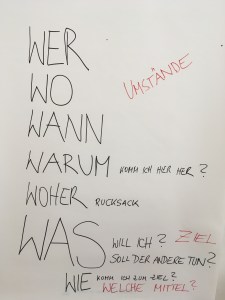 WER
WO
UMSTÄNDE
WANN
WARUM KOMM ICH HIER HER?
WOHER RUCKSACK
WAS WILL ICH? ZIEL
SOLL DER ANDERE TUN?
WIE KOMM ICH ZUM ZIEL?
WELCHE MITTEL?